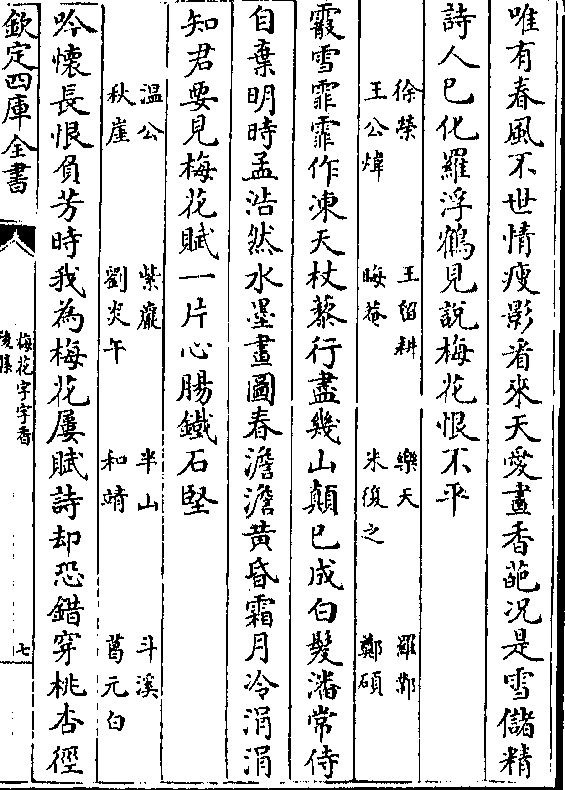 唯有春風不世情瘦影看來天愛畫香葩况是雪儲精
詩人已化羅浮鶴見說梅花恨不平
徐榮　王留耕　樂天　羅鄴
王公煒　晦菴　米復之　鄭碩
霰雪霏霏作凍天杖藜行盡幾山顛已成白髮潘常侍
自棄明時孟浩然水墨畫圖春澹澹黄昏霜月冷涓涓
知君要見梅花賦一片心腸鐵石堅
温公　紫巖　半山　斗溪
秋崖　劉炎午　和靖　葛元白
吟懷長恨負芳時我為梅花屢賦詩却恐錯穿桃杏徑
欽定四庫全書
梅花字字香
後集
七